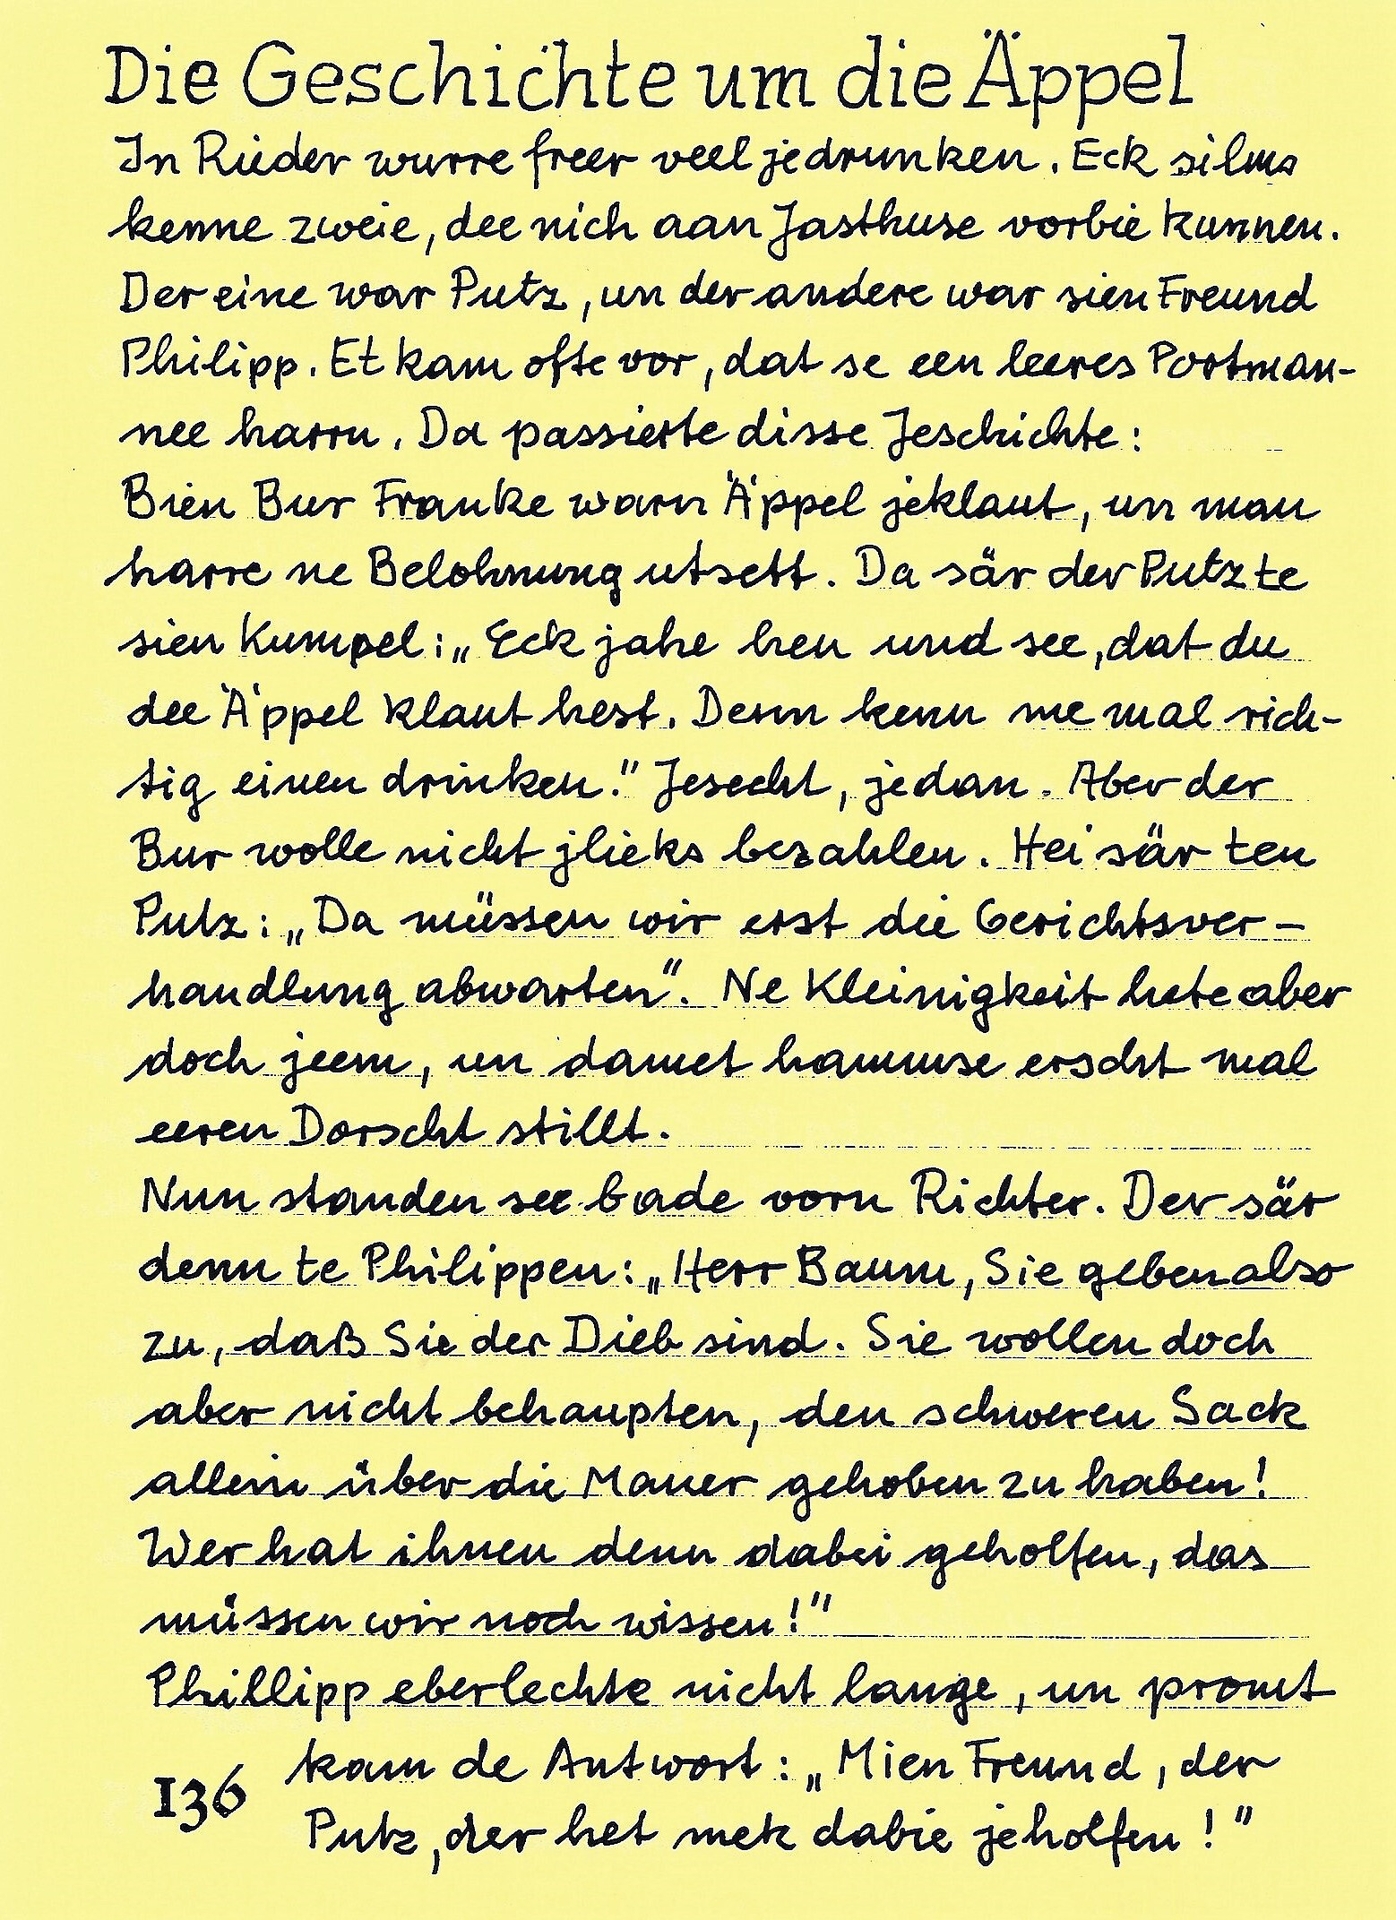 Die Geschichte um die Äppel
In Rieder wurre freer veel jedrunken. Eck silms
kenne zweie, dee nich aan Jasthuse vorbie kunnen.
Der eine war Putz, un der andere war sien Freund
Philipp. Et kam ofte vor, dat se een leeres Portman-
nee harrn. Da passierte disse Jeschichte:
Bien Bur Franke warn Äppel jeklaut, un man
harre ne Belohnung utsett. Da sär der Putz te
sien Kumpel: „Eck jahe hen und see, dat du
dee Äppel klaut hest. Denn kenn me mal rich-
tig einen drinken." Jesecht, jedan. Aber der
Bur wolle nicht jlieks bezahlen. Hei sär ten
Putz: „Da müssen wir erst die Gerichtsver-
handlung abwarten". Ne Kleinigkeit hete aber
doch jeem, un damet hammse erscht mal
eeren Dorscht stillt.
Nun standen see bade vorn Richter. Der sär
denn te Philippen: „Herr Baum, Sie geben also
zu, daß Sie der Dieb sind. Sie wollen doch
aber nicht behaupten, den schweren Sack
allein über die Mauer gehoben zu haben!
Wer hat ihnen denn dabei geholfen, das
müssen wir noch wissen!"
Phillipp eberlechte nicht lange, un promt
kam de Antwort: „Mien Freund, der
136 Putz, der het mek dabie jeholfen!"